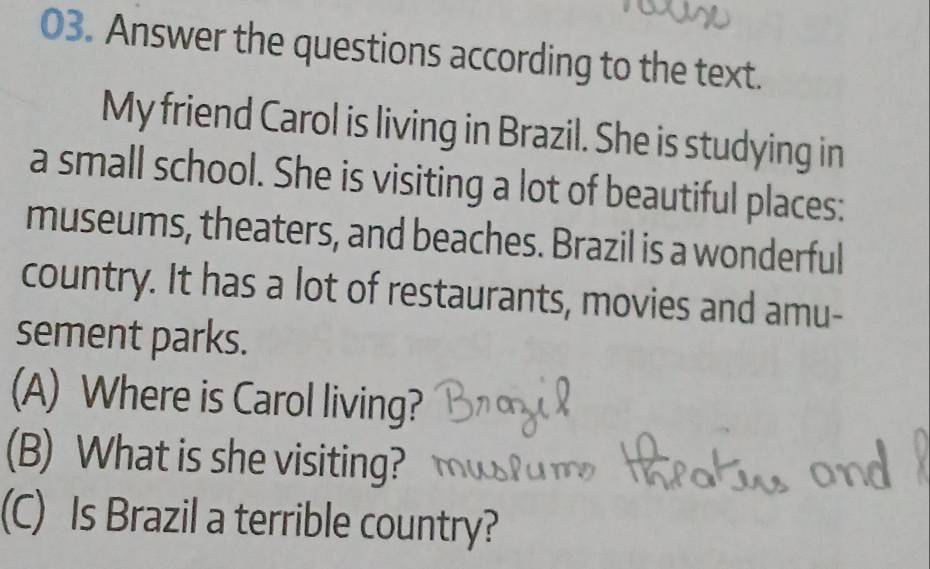 03. Answer the questions according to the text.
My friend Carol is living in Brazil. She is studying in
a small school. She is visiting a lot of beautiful places:
museums, theaters, and beaches. Brazil is a wonderful
country. It has a lot of restaurants, movies and amu-
sement parks.
(A) Where is Carol living? Brazil
(B) What is she visiting? museums theaters and
(C) Is Brazil a terrible country?